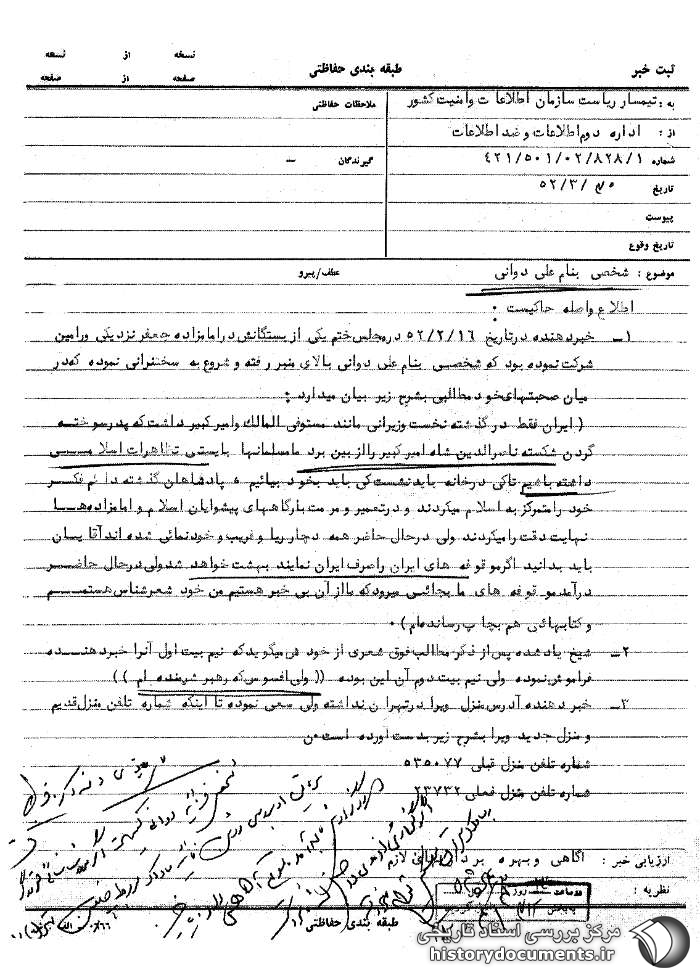 نسخه از نسخه
ثبت خبر طبقه بندی حفاظتی صفحه از صفحه
به : تیمسار ریاست سازمان اطلاعات وامنیت کشور ملاحظات حفاظتی
از : اداره دوم اطلاعات و ضد اطلاعات
شماره ۴۲۱/۵۰۱/۰۲/۸۲۸/۱ گیرندگان —
تاریخ ۵۲/۳/
پیوست
تاریخ وقوع
موضوع : شخصی بنام علی دوانی عطف/پیرو
اطلاع واصله حاکیست :
۱ـ خبردهنده درتاریخ ۵۲/۲/۱۶ درمجلس ختم یکی از بستگانش درامامزاده جعفر نزدیکی ورامین
شرکت نموده بود که شخصی بنام علی دوانی بالای منبر رفته و شروع به سخنرانی نموده که در
میان صحبتهای خود مطالبی بشرح زیر بیان میدارد :
( ایران فقط در گذشته نخست وزیرانی مانند مستوفی الممالک وامیر کبیر داشت که پدرسوخته
گردن شکسته ناصرالدین شاه امیر کبیر رااز بین برد مامسلمانها بایستی تظاهرات اسلامی
داشته باشیم تاکی درخانه باید نشست کی باید بخود بیائیم ، پادشاهان گذشته دائم فکر
خود رامتمرکز به اسلام میکردند و درتعمیر و مرمت بارگاههای پیشوایان اسلام و امامزاده ها
نهایت دقت رامیکردند ولی درحال حاضر همه دچار ریا و فریب و خودنمائی شده اند آقایان
باید بدانید اگر موقوفه های ایران راصرف ایران نمایند بهشت خواهد شد ولی درحال حاضر
درآمد موقوفه های ما بجائی میرود که مااز آن بی خبر هستیم من خود شعرشناس هستم
و کتابهائی هم بچاپ رسانده ام ) .
۲ـ شیخ یادشده پس از ذکر مطالب فوق شعری از خود می میگوید که نیم بیت اول آنرا خبردهنده
فراموش نموده ولی نیم بیت دوم آن این بوده (( ولی افسوس که رهبر شرمنده ام ))
۳ـ خبر دهنده آدرس منزل ویرا درتهران نداشته ولی سعی نموده تا اینکه شماره تلفن منزل قدیم
و منزل جدید ویرا بشرح زیر بدست آورده است .ن
شماره تلفن منزل قبلی ۵۳۵۰۷۷
شماره تلفن منزل فعلی ۲۳۷۳۲
ارزیابی خبر : آگاهی و بهره برداریهای لازم
نظریه :
طبقه بندی حفاظتی
مرکز بررسی اسناد تاریخی
historydocuments.ir